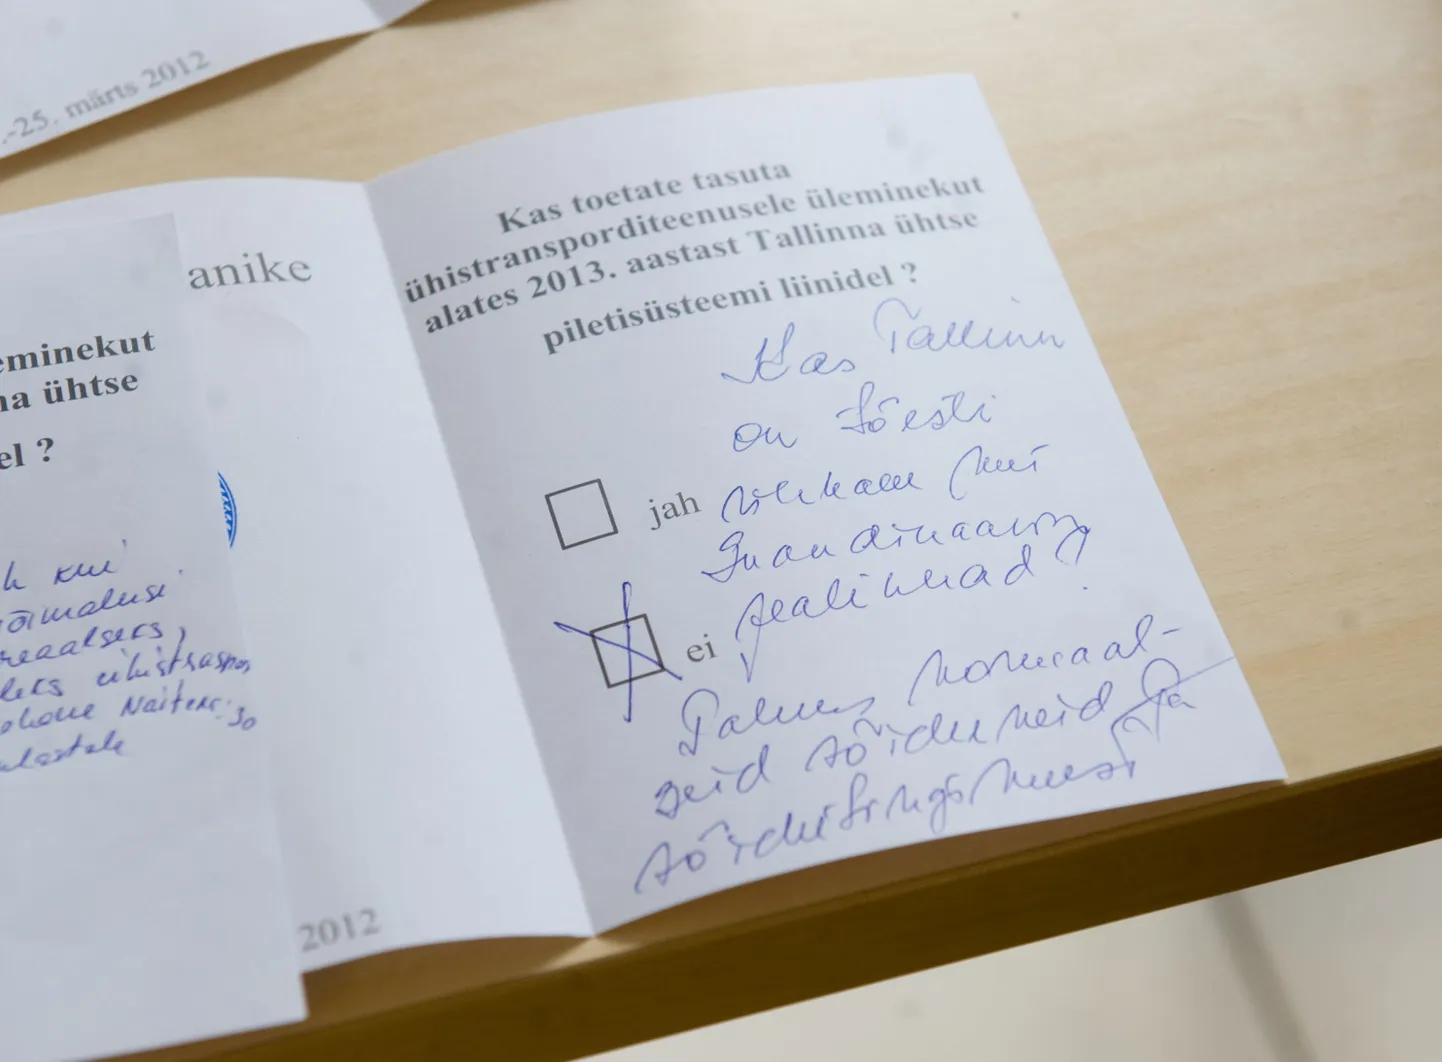 .-25. märts 2012
anike
eminekut
na ühtse
el ?
h kui
õimaluse
reaalseks,
2012
Kas toetate tasuta
ühistransporditeenusele üleminekut
alates 2013. aastast Tallinna ühtse
piletisüsteemi liinidel ?
Kas Tallinn
on tõesti
rikkam kui
Skandinaavia
pealinnad?
jah
ei
Palun normaal-
seid sõiduhindu ja
sõidutingimusi